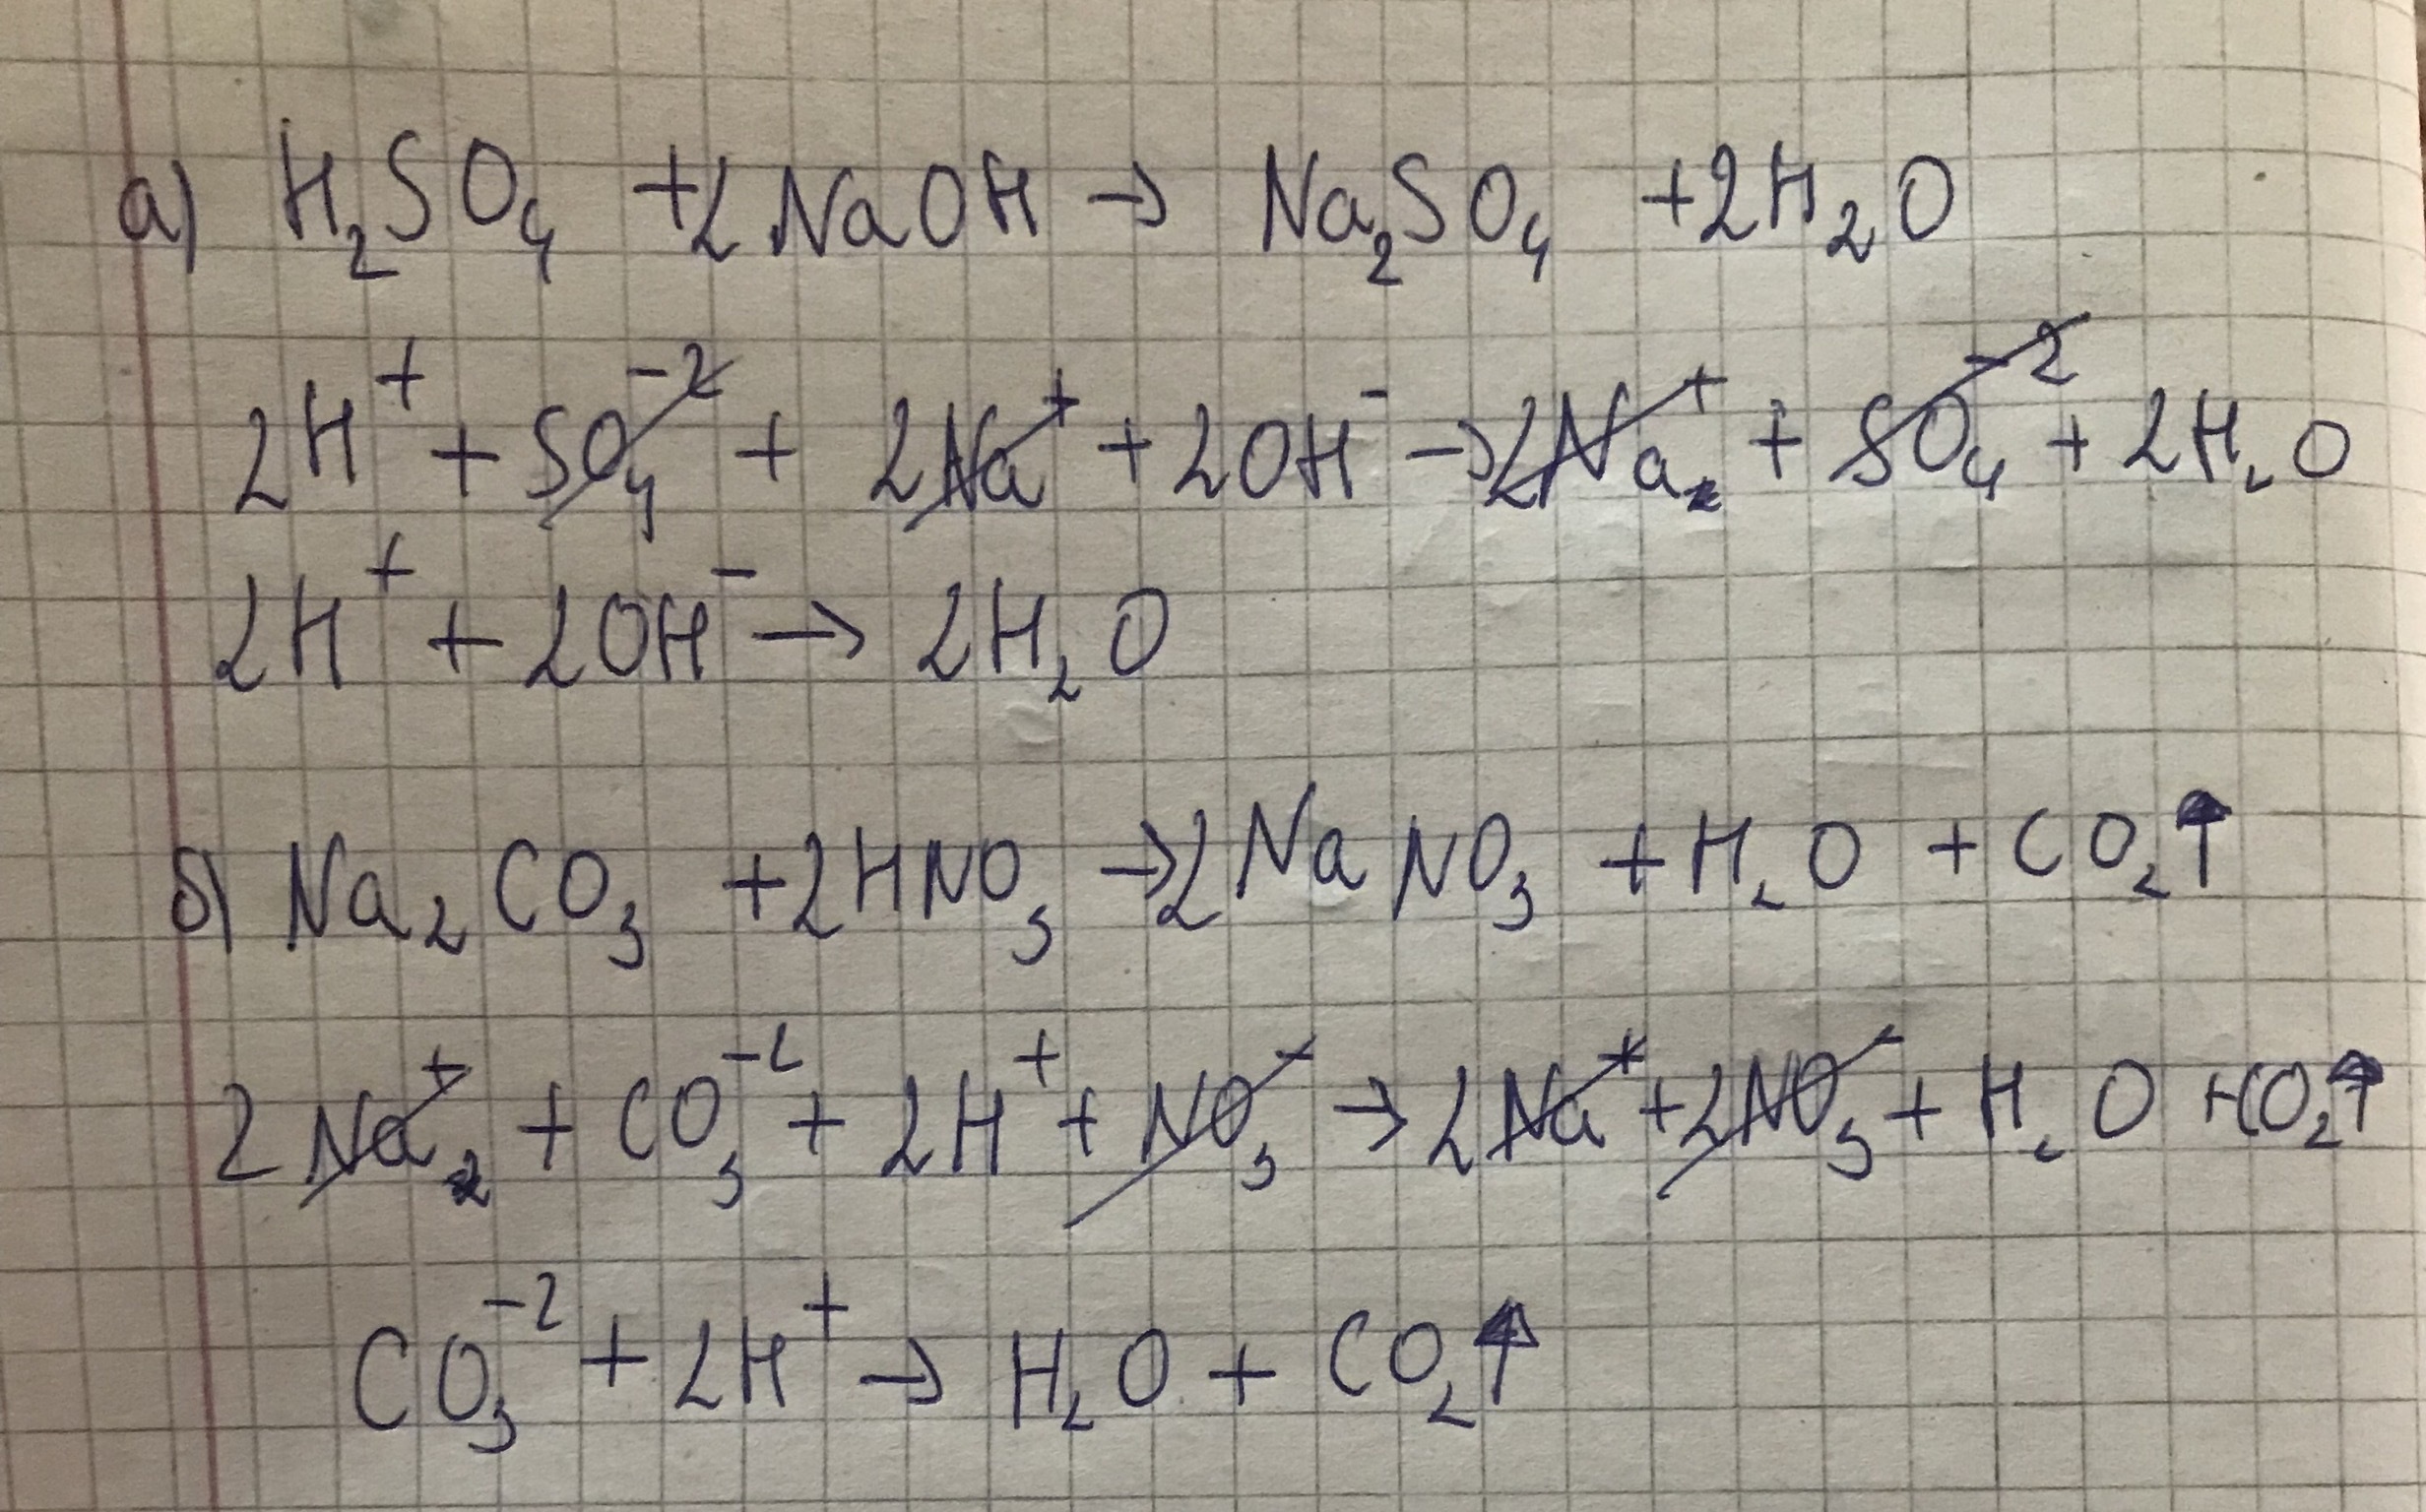 а) H₂SO₄ +2NaOH → Na₂SO₄ +2H₂O
2H⁺ + SO₄⁻² + 2Na⁺ + 2OH⁻ → 2Na⁺ + SO₄⁻² + 2H₂O
2H⁺ + 2OH⁻ → 2H₂O
б) Na₂CO₃ +2HNO₃ → 2NaNO₃ + H₂O + CO₂↑
2Na⁺ + CO₃⁻² + 2H⁺ + NO₃⁻ → 2Na⁺ + 2NO₃⁻ + H₂O + CO₂↑
CO₃⁻² + 2H⁺ → H₂O + CO₂↑